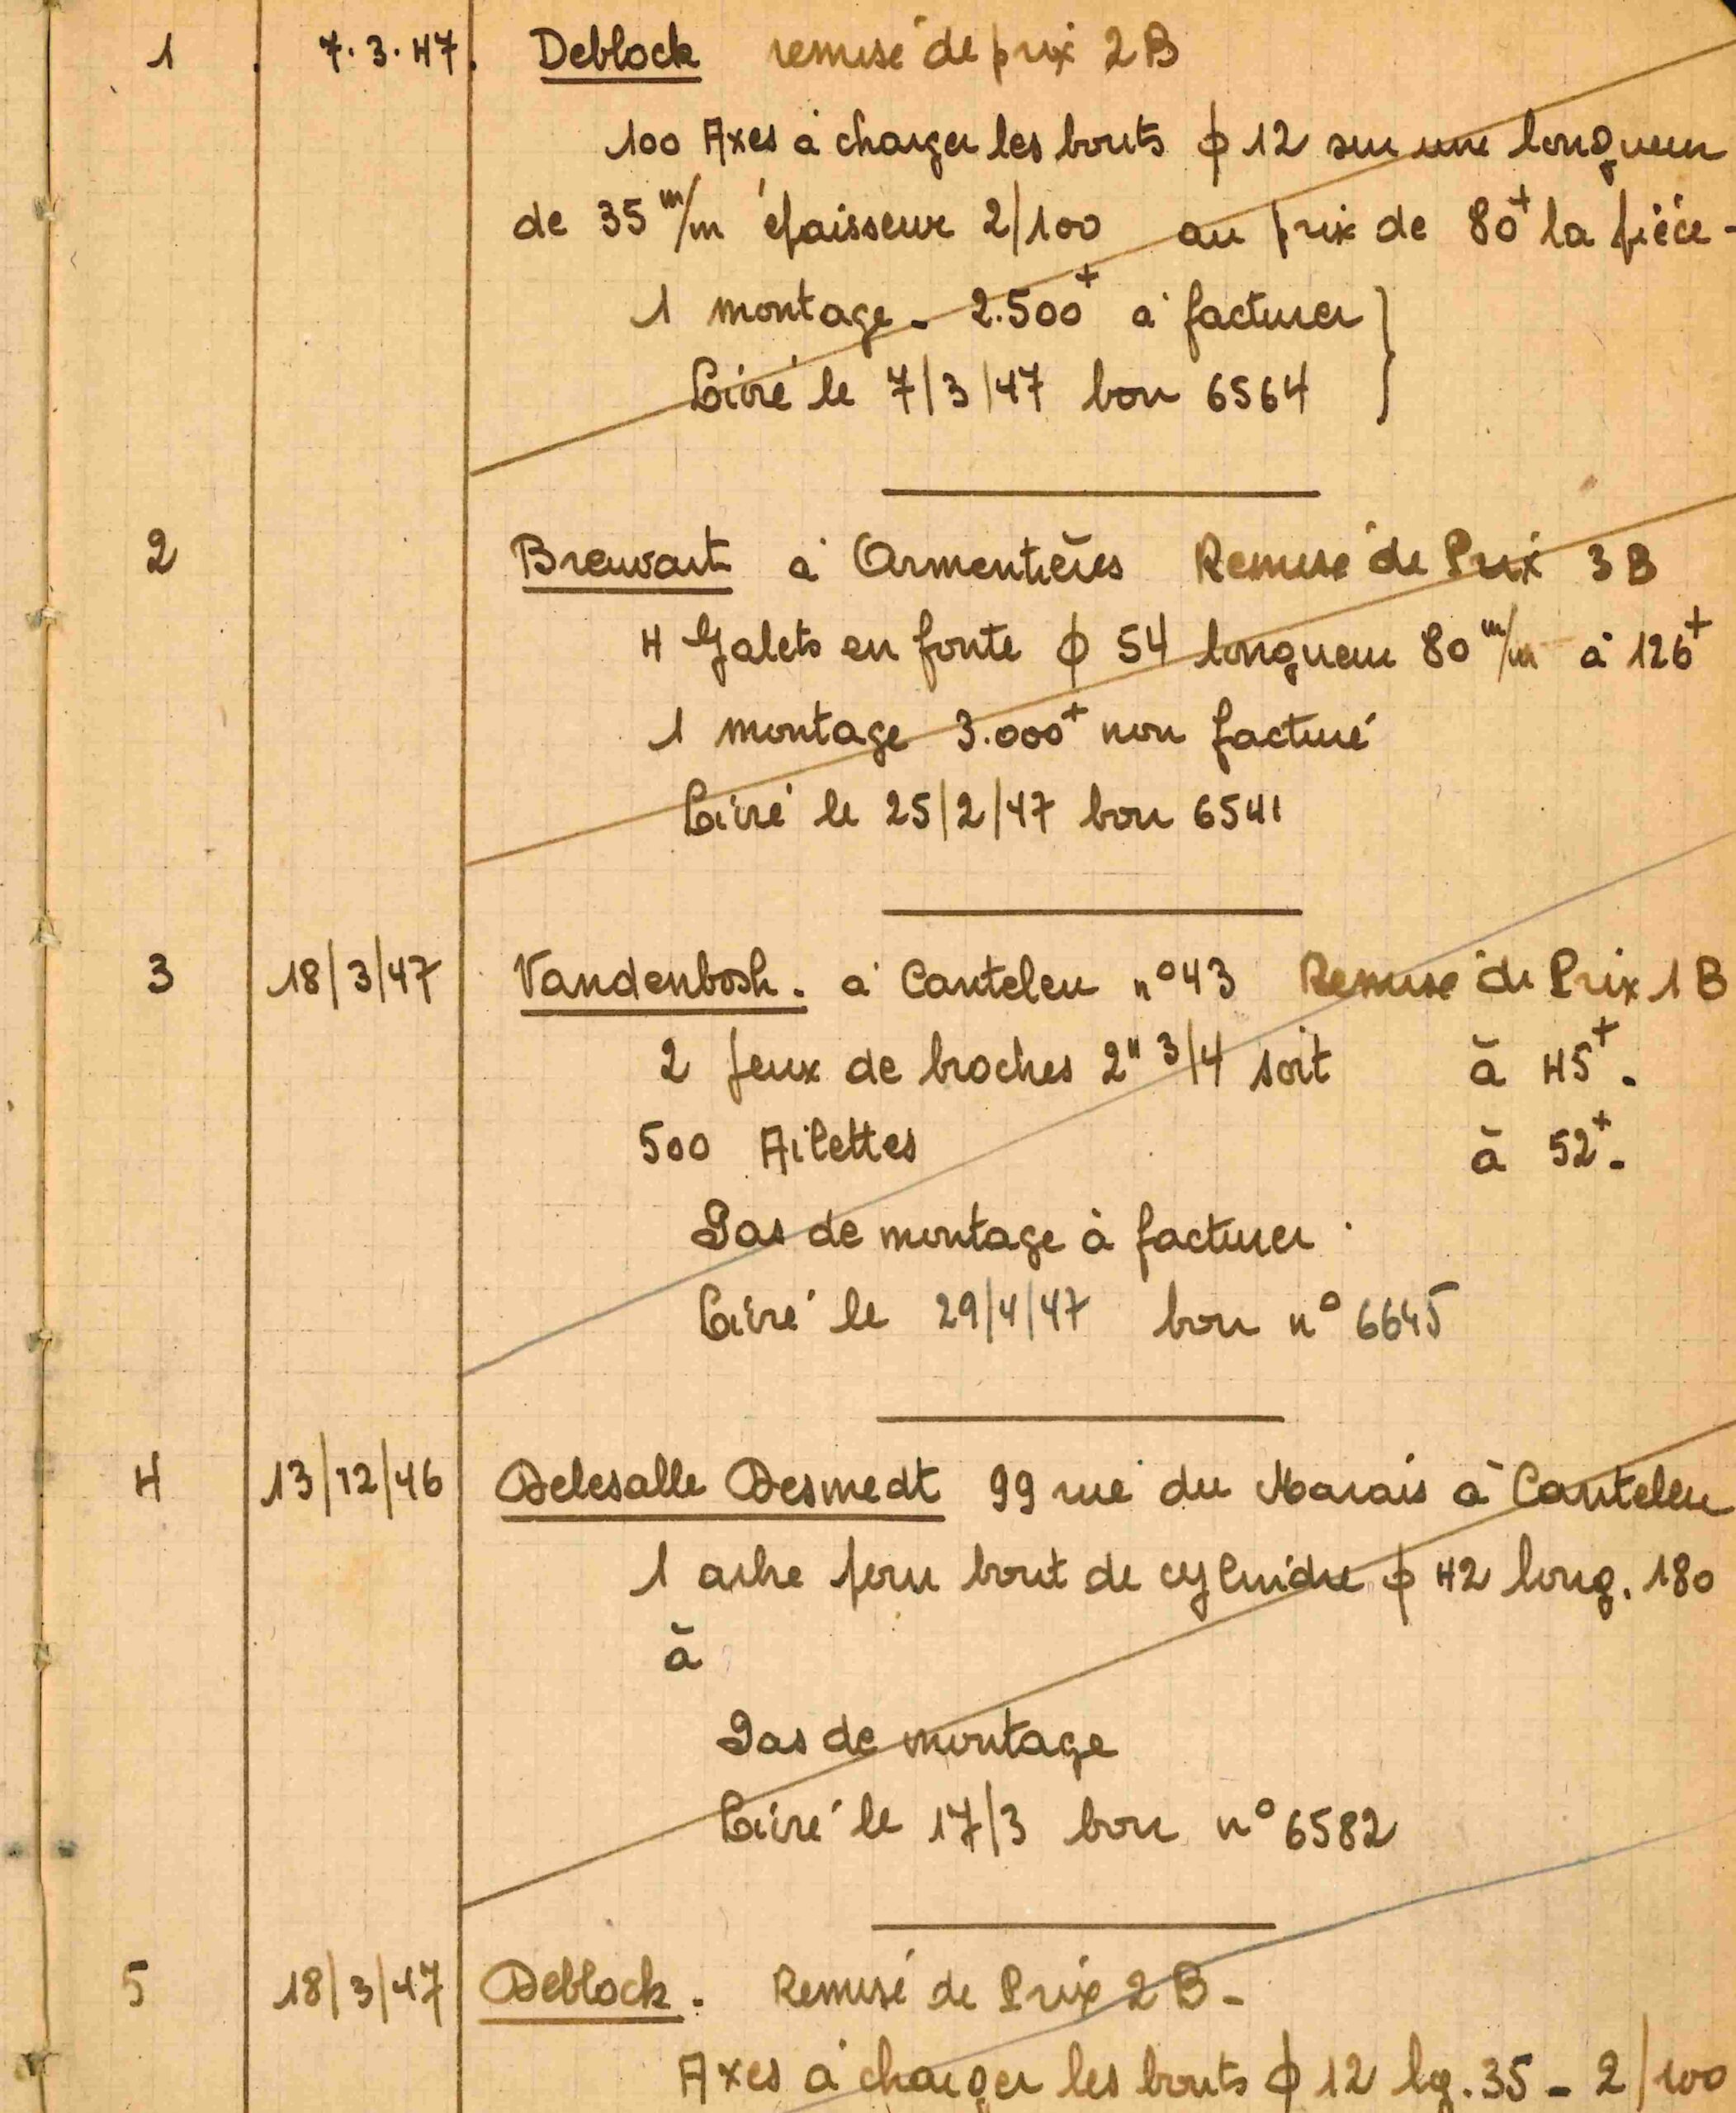 1 7.3.47. Deblock remise de prix 2B
100 Axes à charger les bouts φ 12 sur une longueur
de 35 m/m épaisseur 2/100 au prix de 80+ la pièce -
1 montage - 2.500+ à facturer
Livré le 7/3/47 bon 6564
2 Breuvart à Armentières Remise de Prix 3B
4 Galets en fonte φ 54 longueur 80 m/m à 126+
1 montage 3.000+ non facturé
Livré le 25/2/47 bon 6541
3 18/3/47 Vandenbosh. à Canteleu n°43 Remise de Prix 1B
2 jeux de broches 2" 3/4 soit à 45+.
500 Ailettes à 52+.
Pas de montage à facturer
Livré le 29/4/47 bon n° 6645
4 13/12/46 Delesalle Desmedt 99 rue du Marais à Canteleu
1 arbre pour bout de cylindre φ 42 long. 180
à
Pas de montage
Livré le 17/3 bon n° 6582
5 18/3/47 Deblock. Remise de Prix 2B-
Axes à charger les bouts φ 12 lg. 35 - 2/100